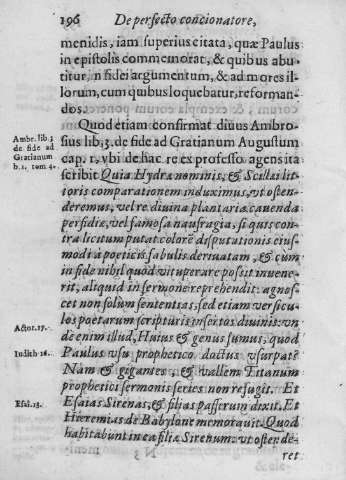 196 De perfecto concionatore,
menidis, iam superius citata, quæ Paulus
in epistolis commemorat, & quibus abu-
titur, in fidei argumentum, & ad mores il-
lorum, cum quibus loquebatur, reforman-
dos.
Quod etiam confirmat diuus Ambro-
sius lib. 3. de fide ad Gratianum Augustum
cap. 1. vbi de hac re ex professo agens ita
scribit Quia Hydræ nominis, & Scillæ lit-
toris comparationem induximus, vt osten-
deremus, vel rediuina plantaria cauenda
perfidiæ, vel famosa naufragia, si quis con-
tra licitum putat colorē disputationis eius-
modi à poeticis fabulis deriuatam, & cum
in fide nihil quod vituperare possit inuene-
rit, aliquid in sermone reprehendit: agnos-
cet non solùm sententias, sed etiam versicu-
los poetarum scripturis insertos diuinis: vn
de enim illud, Huius & genus sumus, quod
Paulus vsu prophetico doctus vsurpatè
Nam & gigantes, & vallem Titanum
prophetici sermonis series non refugit. Et
Esaias Sirenas, & filias passerum dixit. Et
Hieremias de Babylone memorauit. Quod
habitabunt in ea filiæ Sirenum: vt osten de-
ret
Ambr. lib. 3
de fide ad
Gratianum
tom 4.
Actor. 17.
Iudith 16.
Esai. 13.